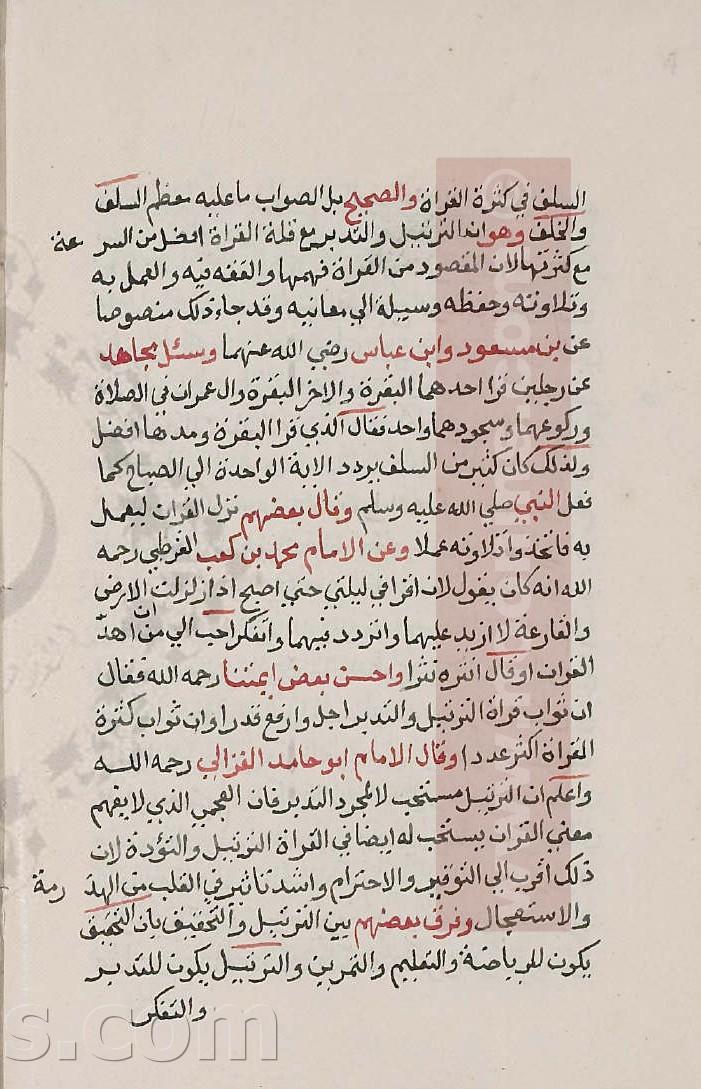 السلف في كثرة القراة والصحيح بل الصواب ما عليه معظم السلف
والخلف وهو ان الترتيل والتدبر مع قلة القراة افضل من السرعة
مع كثرتها لان المقصود من القراة فهمها والفقه فيه والعمل به
وتلاوته وحفظه وسيلة الي معانيه وقد جاء ذلك منصوصا
عن بن مسعود وابن عباس رضي الله عنهما وسئل مجاهد
عن رجلين قرا احدهما البقرة والاخر البقرة وال عمران في الصلاة
وركوعهما وسجودهما واحد فقال الذي قرا البقرة ومدها افضل
ولذلك كان كثير من السلف يردد الاية الواحدة الي الصباح كما
فعل النبي صلي الله عليه وسلم وقال بعضهم نزل القران ليعمل
به فاتخذوا تلاوته عملا وعن الامام محمد بن كعب القرظي رحمه
الله انه كان يقول لان اقرا في ليلتي حتي اصبح اذا زلزلت الارض
والقارعة لا ازيد عليهما واتردد فيهما واتفكر احب الي من ان اهذ
القران او قال انثره نثرا واحسن بعض ايمتنا رحمه الله فقال
ان ثواب قراة الترتيل والتدبر اجل وارفع قدرا وان ثواب كثرة
القراة اكثر عددا وقال الامام ابو حامد الغزالي رحمه الله
واعلم ان الترتيل مستحب لا لمجرد التدبر فان العجمي الذي لا يفهم
معني القران يستحب له ايضا في القراة الترتيل والتؤدة لان
ذلك اقرب الي التوقير والاحترام واشد تاثير في القلب من الهذرمة
والاستعجال وفرق بعضهم بين الترتيل والتحقيق بان التحقيق
يكون للرياضة والتعليم والتمرين والترتيل يكون للتدبر
والتفكر
s.com